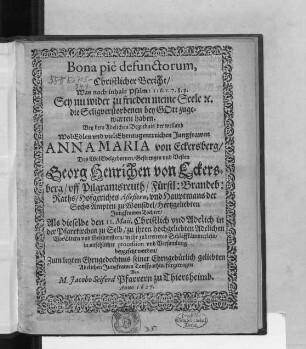 Bona piè defunctorum,
Christlicher Bericht/
Was nach inhalt Psalm: 116. v. 7. 8. 9.
Sey nu wider zu frieden meine Seele ꝛc.
die Seligverstorbenen bey GOtt zuge-
warten haben.
Bey dem Adelichen Begräbnis der weiland
WolEdlen und viel Ehrentugentreichen Jungfrawen
ANNA MARIA von Eckersberg/
Des WolEdelgebornen, Gestrengen und Vesten
Georg Henrichen von Eckers-
berg/ uff Pilgramsreuth/ Fürstl: Brandeb:
Raths/ Hofgerichts Assessorn, und Hauptmans der
Sechs Ämpter zu Wonsidel, hertzgeliebten
Jungfrawen Tochter/
Als dieselbe den 11. Maii, Christlich und Adelich in
der Pfarrkirchen zu Selb/ zu ihren hochgeliebten Adelichen
in ansehlicher procession und Versamlung
beygesetzt worden/
Zum letzten Ehrngedechtnus seiner Ehrngebürlich geliebten
Adelichen Jungfrawen
M. Jacobo Seiferd Pfarrern zu Thiersheimb.
Anno 1627.